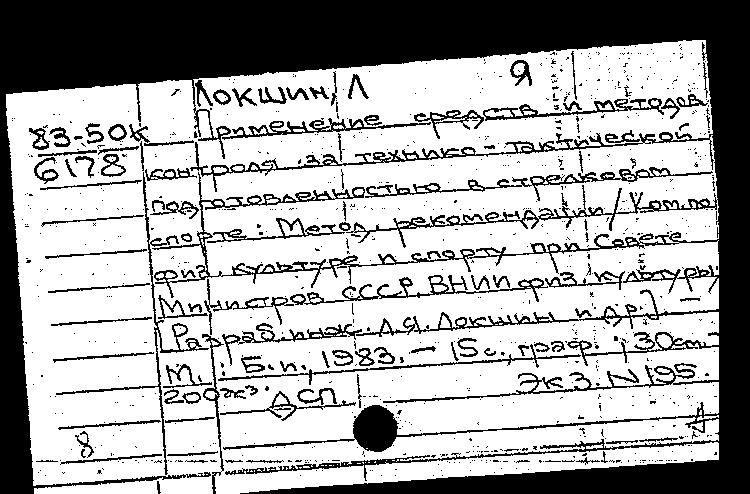 Локшин, Л Я
83-50К Применение средств и методов
6178 контроля за технико-тактической
подготовленностью в стрелковом
спорте: Метод. рекомендации / Ком. по
физ. культуре и спорту при Совете
Министров СССР. ВНИИ физ. культуры;
[Разраб. инж. Л.Я. Локшин и др.]. —
М.: Б.и., 1983. — 15 с., граф.; 30 см. —
200 экз. ДСП. Экз. N 195.
8